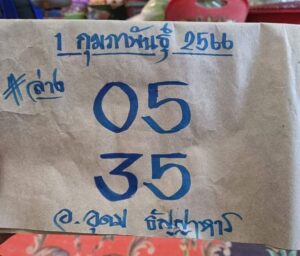 1 กุมภาพันธุ์ 2566
#ล่าง
05
35
อ. อุดม ธัญญาคาร